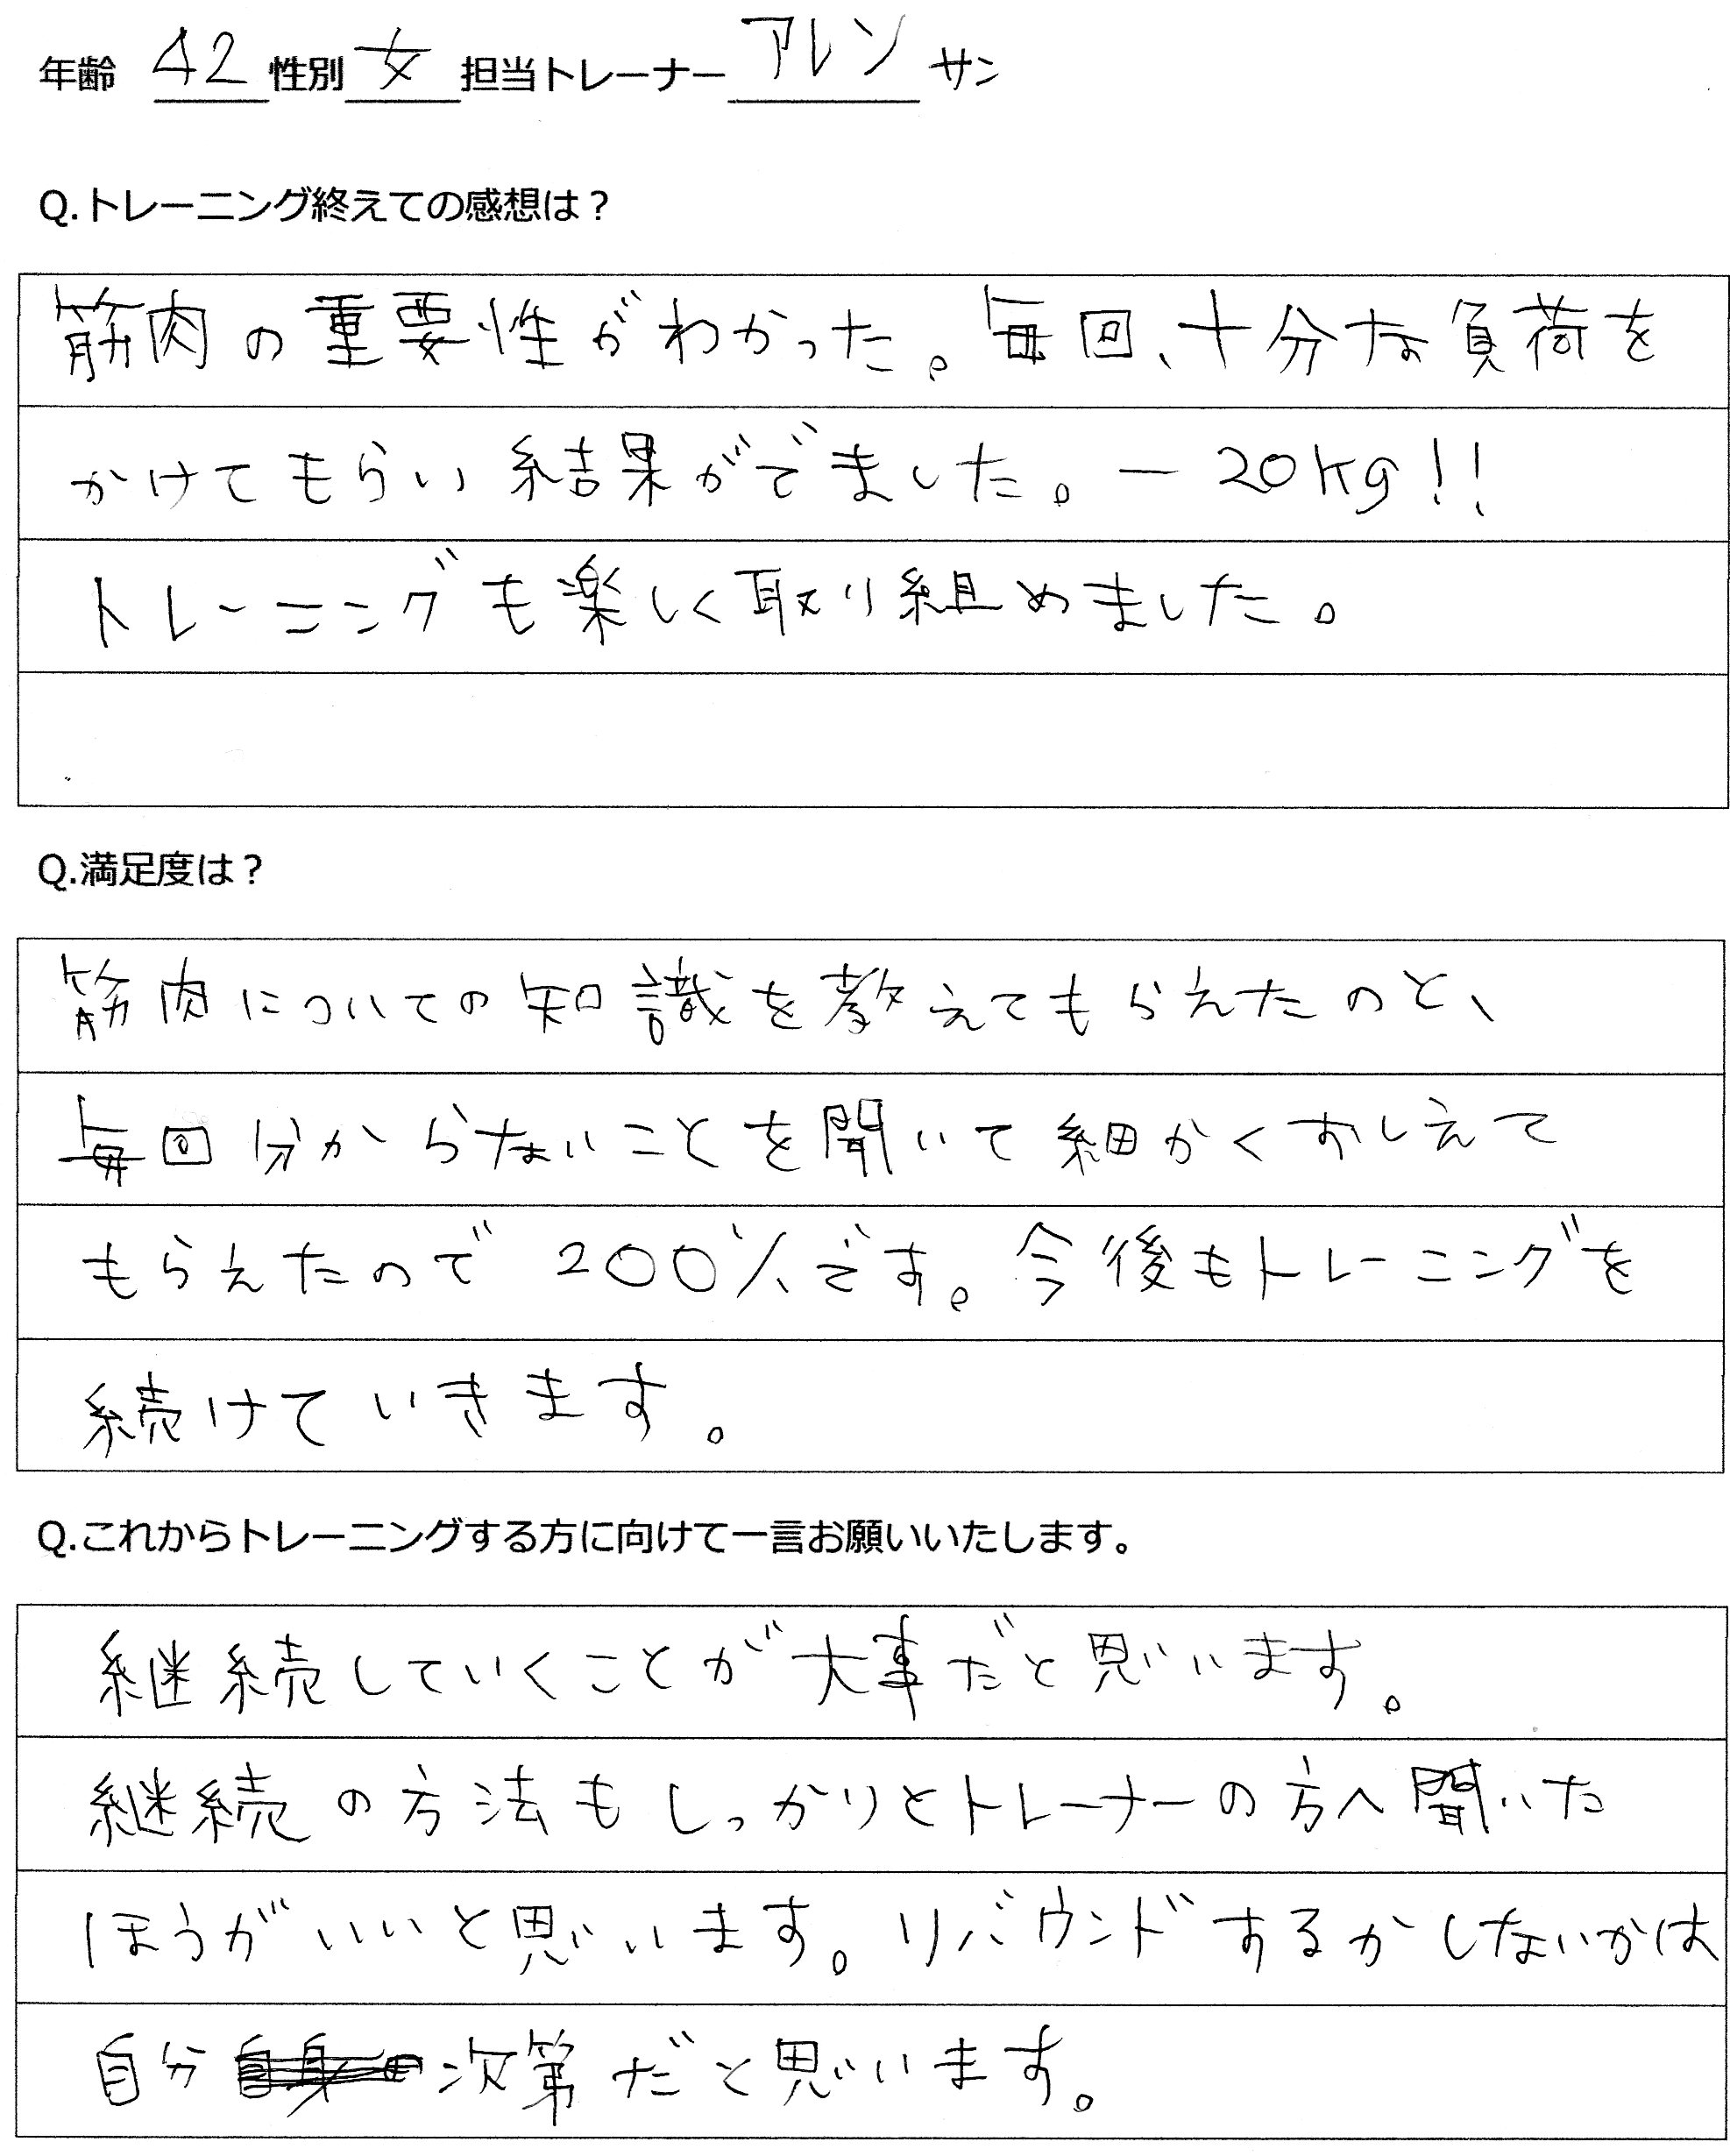 年齢 42 性別 女 担当トレーナー アレン サン
Q.トレーニング終えての感想は？
筋肉の重要性がわかった。毎回、十分な負荷を
かけてもらい結果がでました。－20kg!!
トレーニングも楽しく取り組めました。
Q.満足度は？
筋肉についての知識を教えてもらえたのと、
毎回分からないことを聞いて細かくおしえて
もらえたので200%です。今後もトレーニングを
続けていきます。
Q.これからトレーニングする方に向けて一言お願いいたします。
継続していくことが大事だと思います。
継続の方法もしっかりとトレーナーの方へ聞いた
ほうがいいと思います。リバウンドするかしないかは
自分次第だと思います。